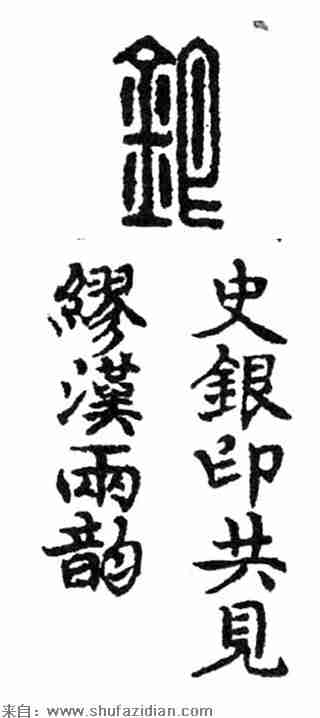 銀
史銀印共見
繆漢兩韵
来自：www.shufazidian.com